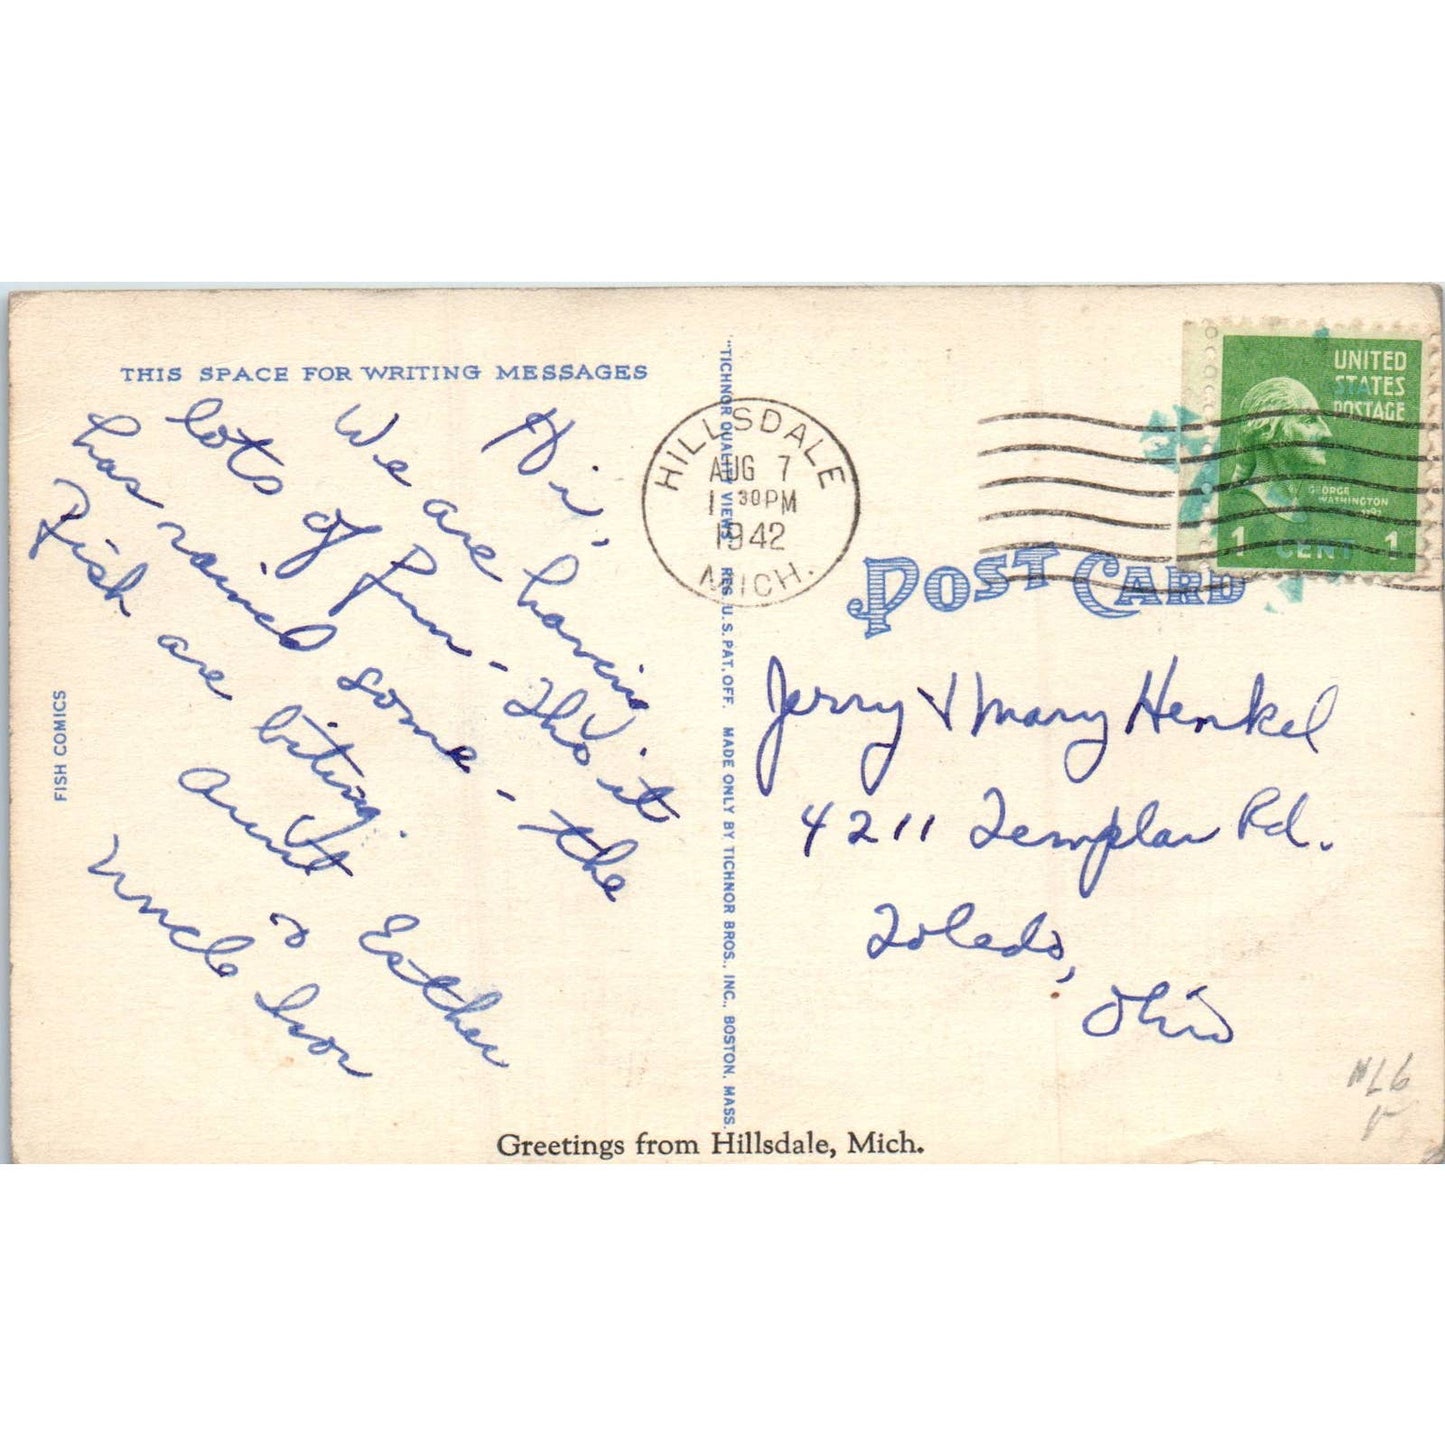 THIS SPACE FOR WRITING MESSAGES
Hi,
We are having
lots of fun - Tho it
has rained some - the
fish are biting.
Aunt Esther
&
Uncle Ivor
FISH COMICS
"TICHNOR QUALITY VIEWS," REG. U. S. PAT. OFF. MADE ONLY BY TICHNOR BROS., INC., BOSTON, MASS.
HILLSDALE
AUG 7
1 30 PM
1942
MICH.
UNITED
STATES
POSTAGE
GEORGE
WASHINGTON
1 CENT 1
POST CARD
Jerry & Mary Henkel
4211 Templar Rd.
Toledo,
Ohio
Greetings from Hillsdale, Mich.